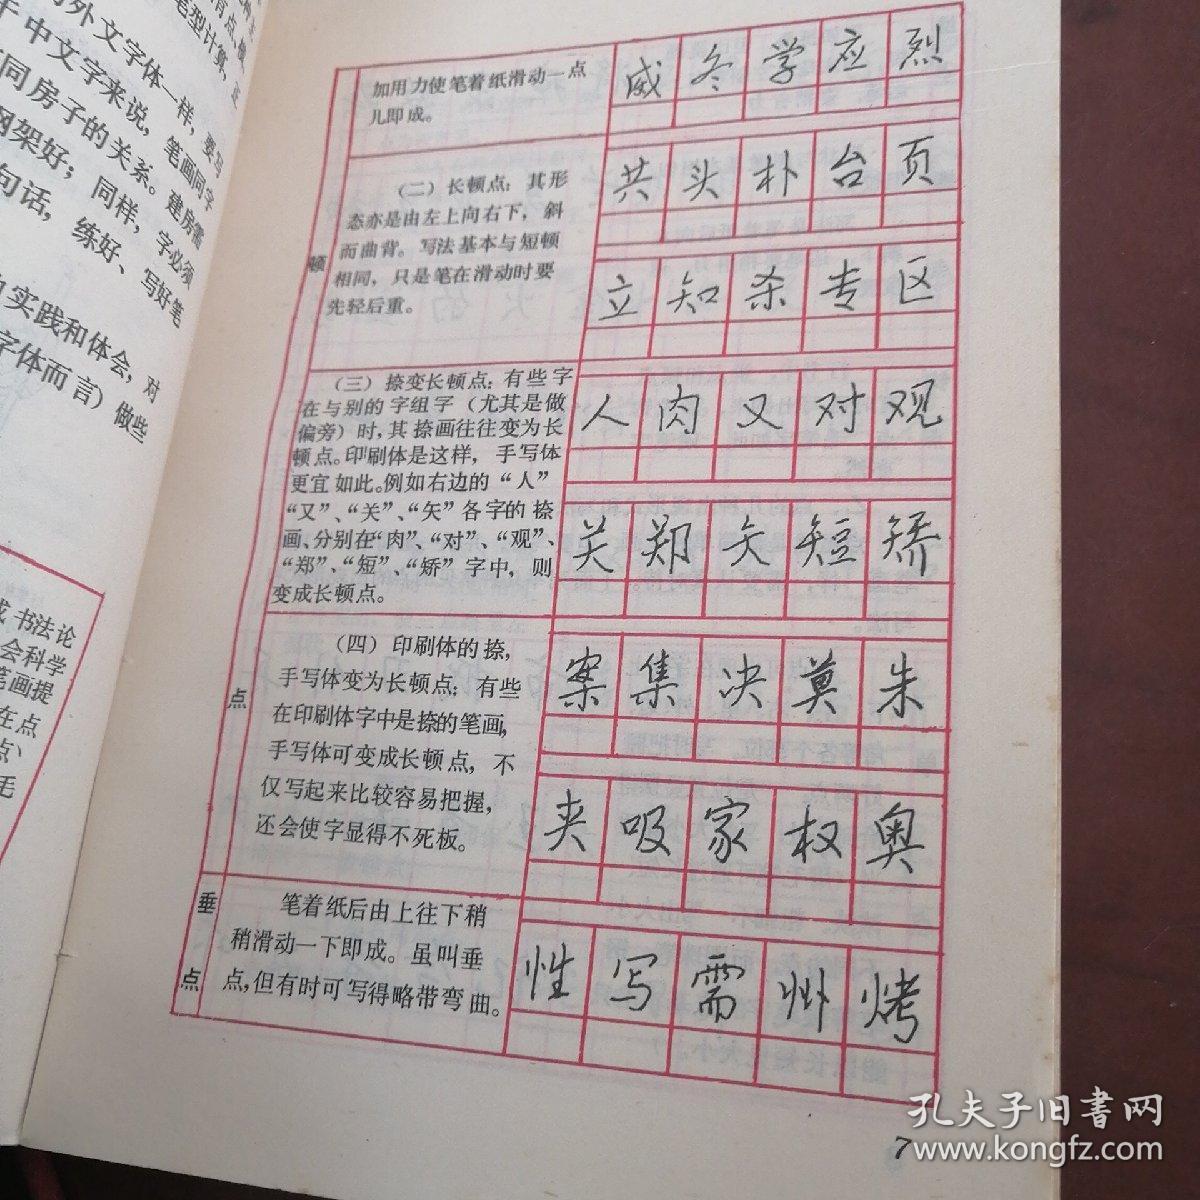 外文字体一样，要写
中文字来说，笔画同字
同房子的关系。建房需
钢架好；同样，字必须
句话，练好、写好笔
实践和体会，对
字体而言）做些
书法论
会科学
笔画提
在点
点、
毛
加用力使笔着纸滑动一点
儿即成。
威 冬 学 应 烈
顿
（二）长顿点：其形
态亦是由左上向右下，斜
而曲背。写法基本与短顿
相同，只是笔在滑动时要
先轻后重。
共 头 朴 台 页
立 知 杀 专 区
（三）捺变长顿点：有些字
在与别的字组字（尤其是做
偏旁）时，其捺画往往变为长
顿点。印刷体是这样，手写体
更宜如此。例如右边的“人”
“又”、“关”、“矢”各字的捺
画、分别在“肉”、“对”、“观”、
“郑”、“短”、“矫”字中，则
变成长顿点。
人 肉 又 对 观
关 郑 矢 短 矫
点
（四）印刷体的捺，
手写体变为长顿点；有些
在印刷体字中是捺的笔画，
手写体可变成长顿点，不
仅写起来比较容易把握，
还会使字显得不死板。
案 集 决 莫 朱
夹 吸 家 权 奥
垂
点
笔着纸后由上往下稍
稍滑动一下即成。虽叫垂
点，但有时可写得略带弯曲。
性 写 需 州 烤
7
孔夫子旧书网
www.kongfz.com